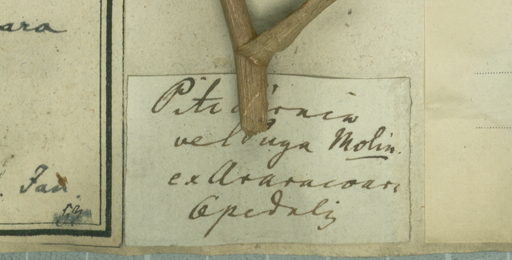 ara
Jan
Pitcairnia
vel Puya Molin.
ex Araracoara
6 pedalis